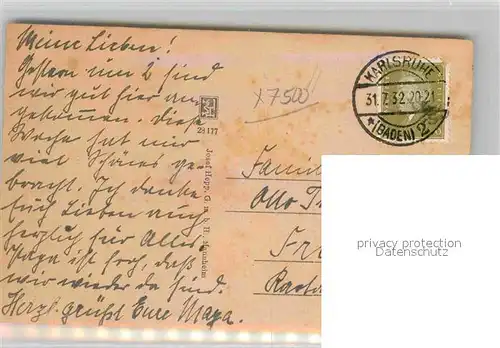 Meine Lieben!
Gestern um 2 sind
wir gut hier an-
gekommen. Diese
Woche hat mir
viel Schönes ge-
bracht. Ich danke
Euch Lieben auch
herzlich für Alles.
Papa ist froh, daß
wir wieder da sind.
Herzl. grüßt Eure Maya.
28177
Josef Hopp, G. m. b. H. Mannheim
x7500
KARLSRUHE
31.7.32.20-21
(BADEN) 2
Famil
Otto
Fr
Rast
privacy protection
Datenschutz